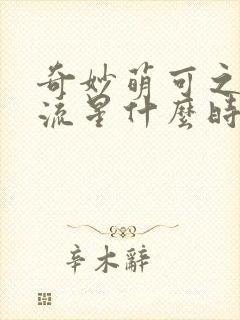 奇妙萌可之
流星什麼時
辛木辭